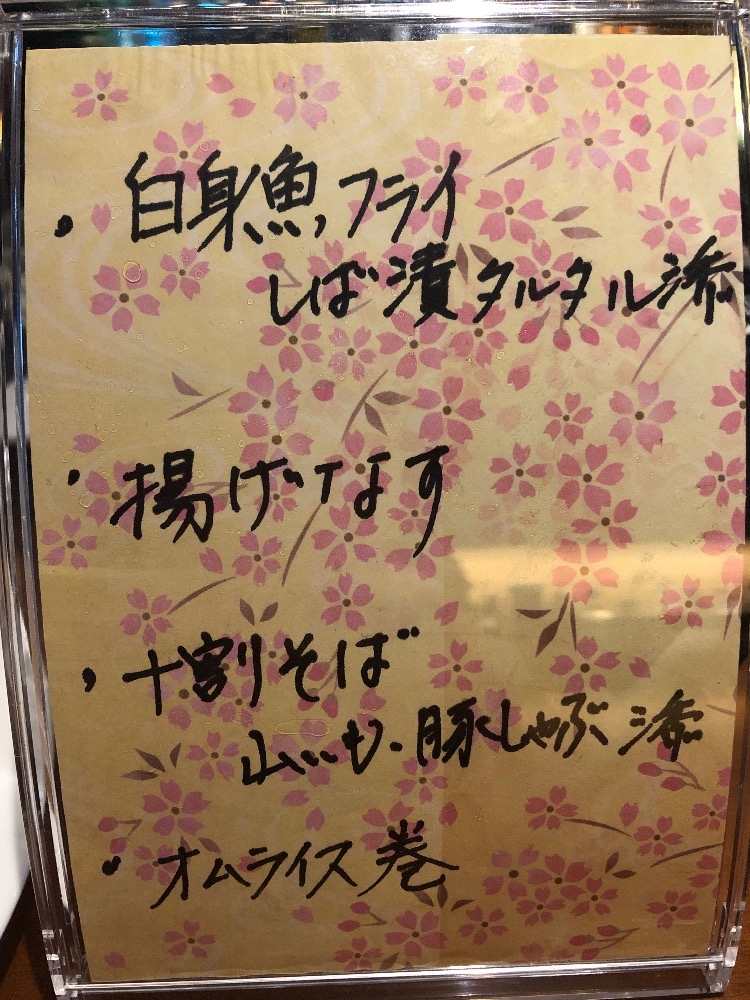 ・白身魚フライ
しば漬タルタル添
・揚げなす
・十割そば
山いも・豚しゃぶ添
・オムライス巻